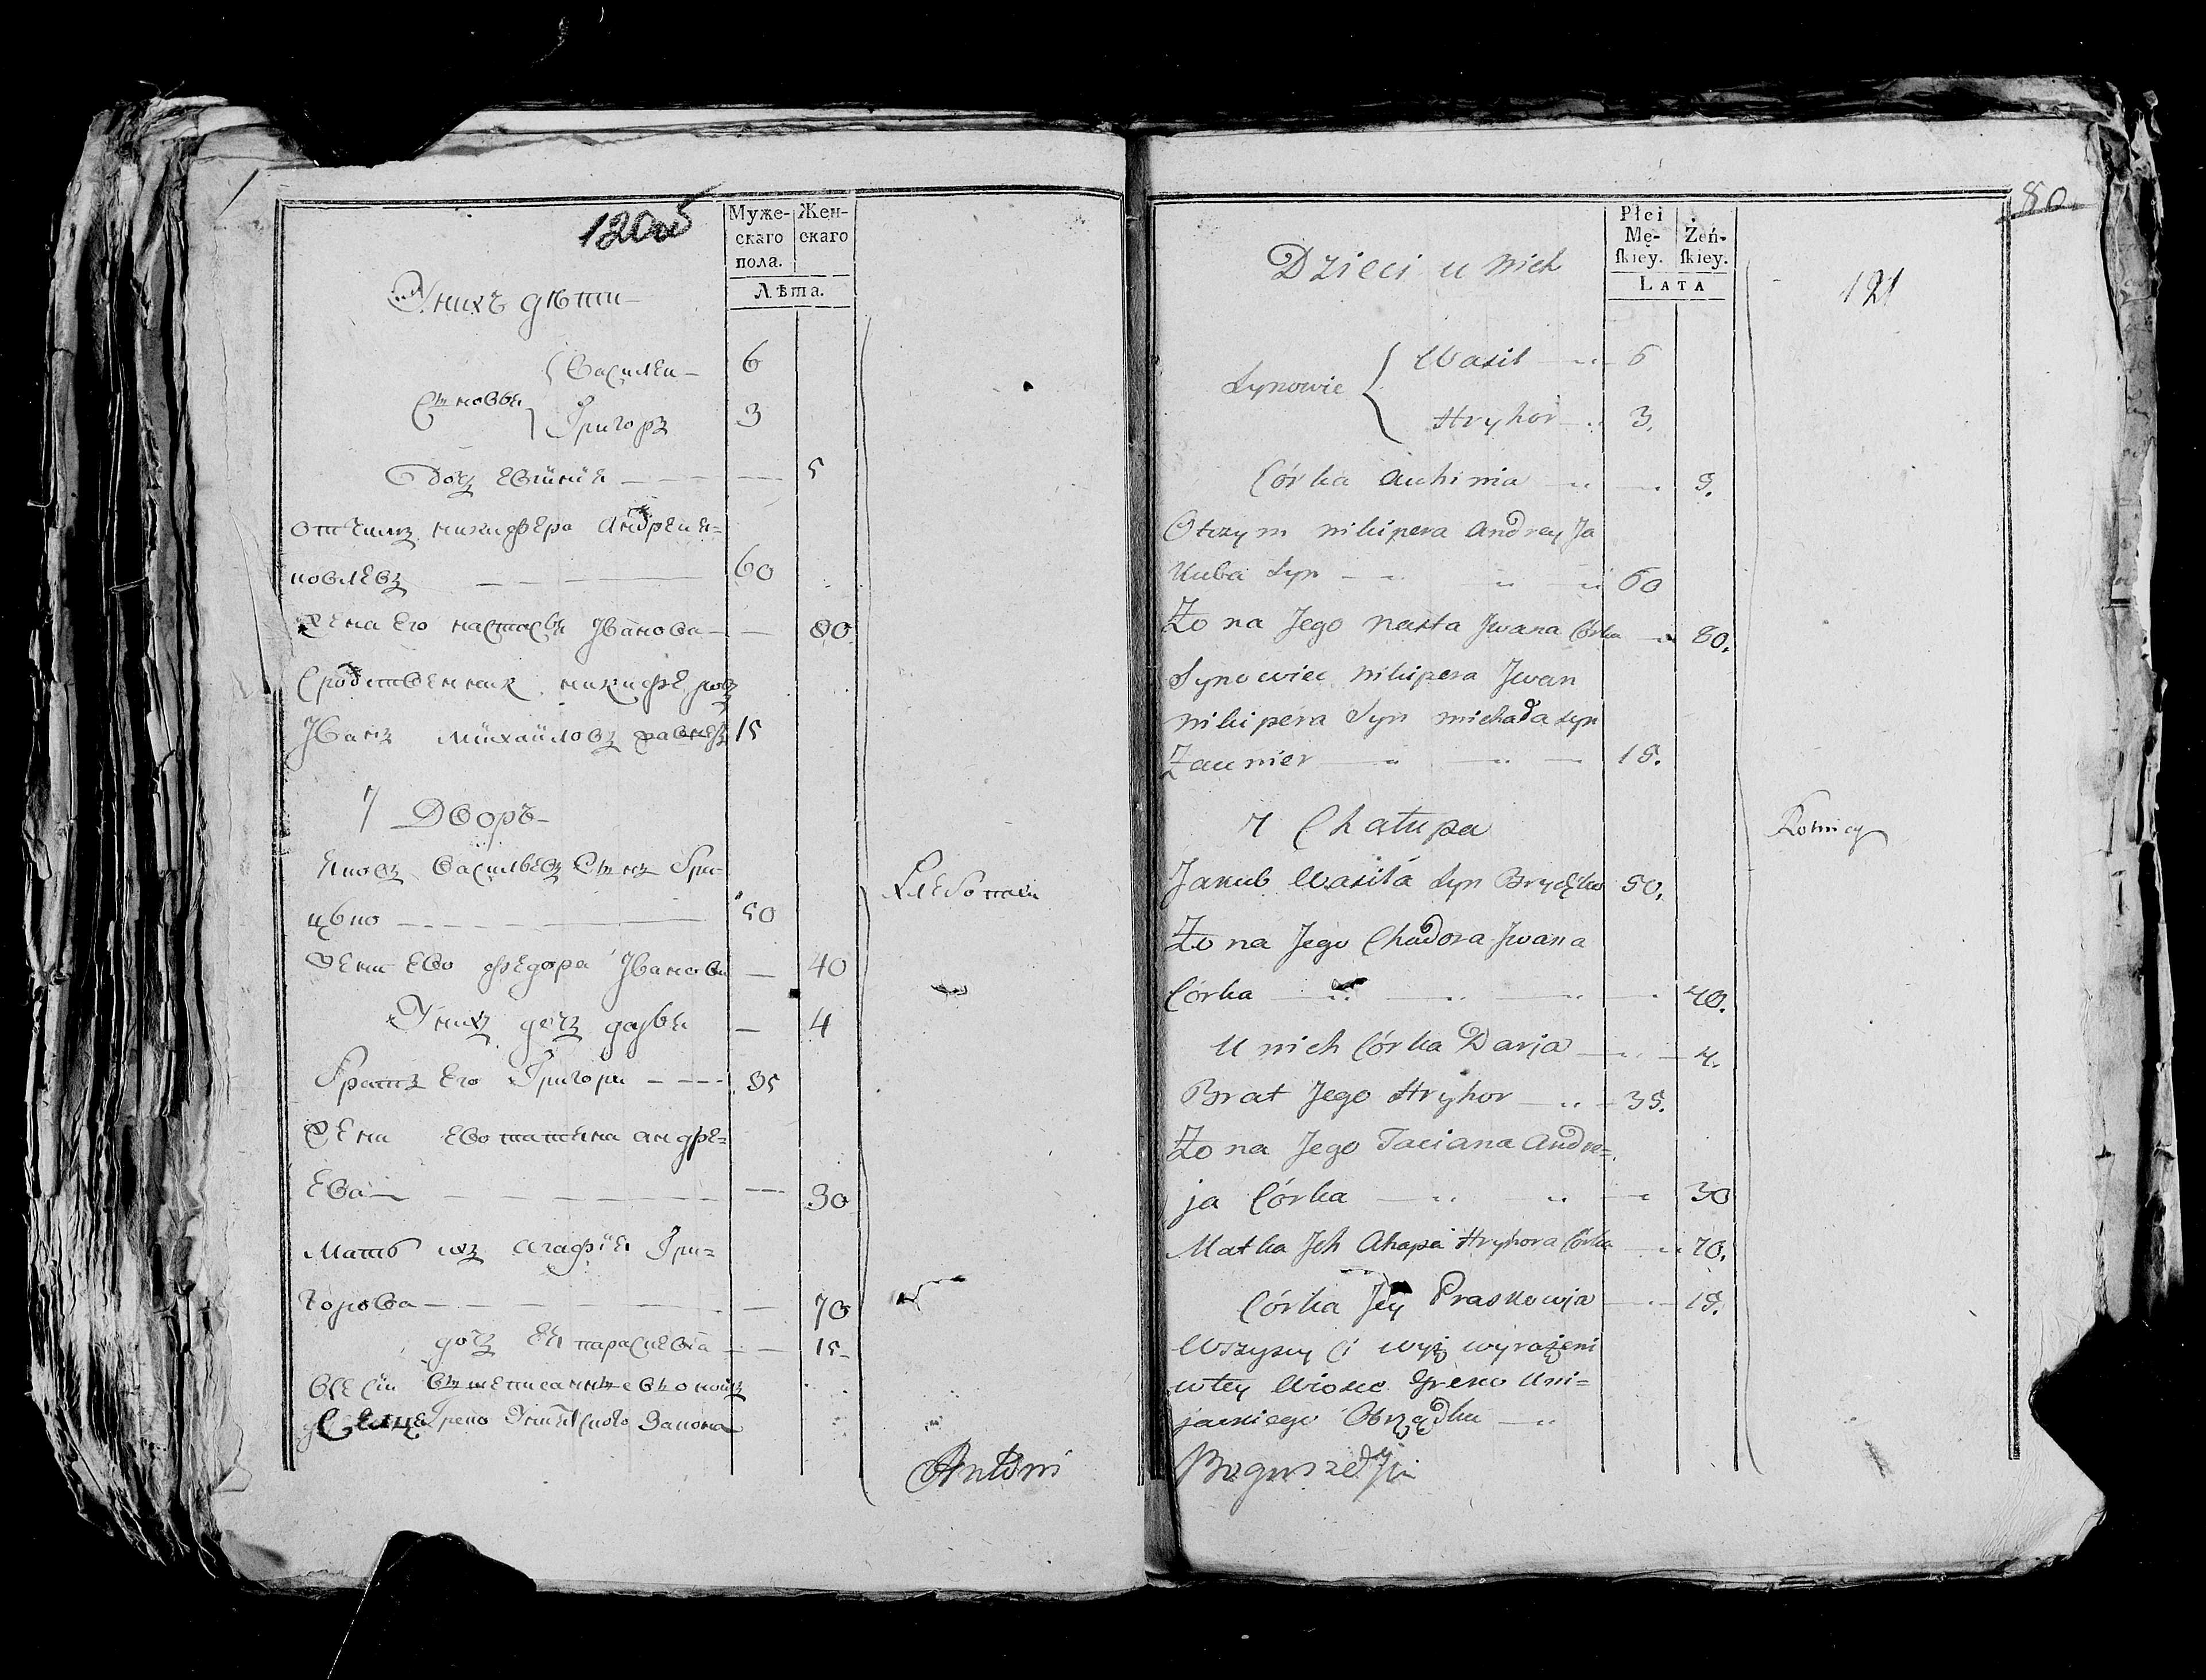 120об
Муже-
скаго
пола.
Жен-
скаго
Лѣта.
У нихъ дѣти
Василеи 6
Сыновья
Григоръ 3
Дочъ Евгинія 5
отчимъ никифера Андреи я-
ковлевъ 60
Жена его настасья Иванова 80
Сродственник никиферовъ
Иванъ михайловъ 15
7 Дворъ
Яковъ Васильевъ Сынъ Гри-
цько 50
Хлебопаш
Жена ево федора Иванова 40
У нихъ дочъ дарья 4
Братъ его Григори 35
Жена ево татяна андре-
ева 30
Мать ихъ агафия Гри-
горова 70
дочъ ея парасковия 15
всѣ сии вышеписанные в
Греко Униятского Закона
Antoni
80
Płci
Mę-
ſkiey.
Żeń-
ſkiey.
LATA
121
Dzieci u nich
Wasil 6
Synowie
Hryhor 3.
Córka Auhinia 5.
Otczym nikipera Andrey Ja
kuba Syn 60
Żona Jego nasta Jwana Córka 80.
Synowiec nikipera Jwan
nikipera Syn michała syn
Żaunier 15.
7 Chałupa
Rolnicy
Jakub Wasila Syn Bryćko 50.
Żona Jego Chadora Jwana
Córka 40.
U nich Córka Darja 4.
Brat Jego Hryhor 35.
Żona Jego Taciana Andre-
ja Córka 30
Matka Jch Ahapa Hryhora Córka 70.
Córka Jey Praskowja 15.
Wszyscy Ci wyż wyrażeni
w tey Wiosce Greko Uni-
jackiego Obrządku